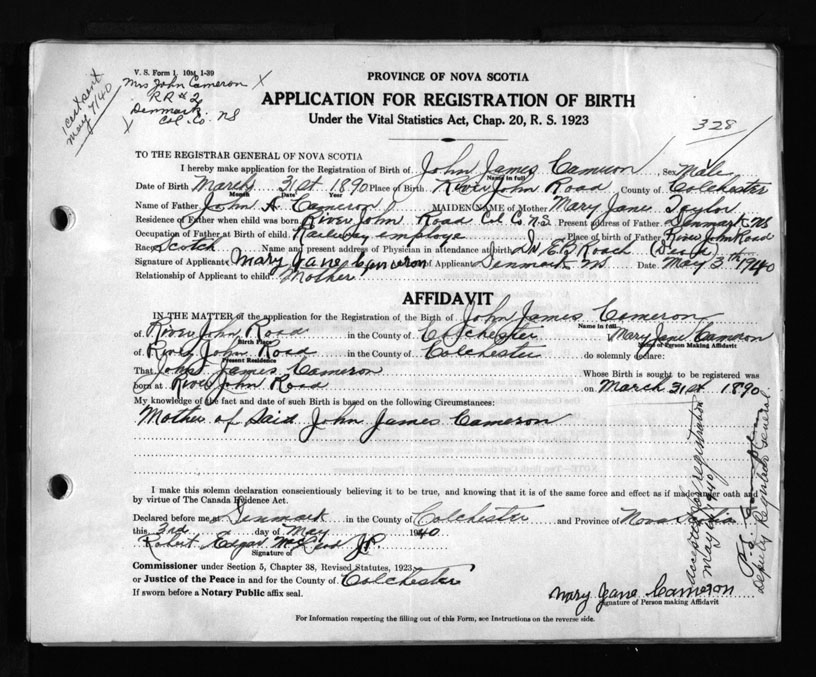 V. S. Form 1. 10M, 1-39
Mrs John Cameron X
RR # 2
Denmark
Col. Co. NS
1 cert sent
May 7/40
PROVINCE OF NOVA SCOTIA
APPLICATION FOR REGISTRATION OF BIRTH
Under the Vital Statistics Act, Chap. 20, R. S. 1923
328
TO THE REGISTRAR GENERAL OF NOVA SCOTIA
I hereby make application for the Registration of Birth of John James Cameron, Sex Male
Name in full
Date of Birth March 31st 1890 Place of Birth River John Road County of Colchester
Month Date Year
Name of Father John A. Cameron MAIDEN NAME of Mother Mary Jane Taylor
Residence of Father when child was born River John Road Col. Co. N.S. Present address of Father Denmark NS
Occupation of Father at Birth of child Railway employe Place of birth of Father River John Road
Race Scotch Name and present address of Physician in attendance at birth Dr E B Roach (Dead)
Signature of Applicant Mary Jane Cameron of Applicant Denmark NS Date May 3th 1940
Relationship of Applicant to child Mother
AFFIDAVIT
IN THE MATTER of the application for the Registration of the Birth of John James Cameron
Name in full
of River John Road in the County of Colchester Mary Jane Cameron
Birth Place
Name of Person Making Affidavit
of River John Road in the County of Colchester do solemnly declare:
Present Residence
That John James Cameron Whose Birth is sought to be registered was
born at River John Road on March 31st 1890
My knowledge of the fact and date of such Birth is based on the following Circumstances:
Mother of Said John James Cameron
I make this solemn declaration conscientiously believing it to be true, and knowing that it is of the same force and effect as if made under oath and
by virtue of The Canada Evidence Act.
Declared before me at Denmark in the County of Colchester and Province of Nova Scotia
this 3rd day of May 1940
Robert Edgar J.P.
Signature of
Commissioner under Section 5, Chapter 38, Revised Statutes, 1923
or Justice of the Peace in and for the County of Colchester
If sworn before a Notary Public affix seal.
Mary Jane Cameron
Signature of Person making Affidavit
For Information respecting the filling out of this Form, see Instructions on the reverse side.
Accepted for registration
May 1940
Deputy Registrar General